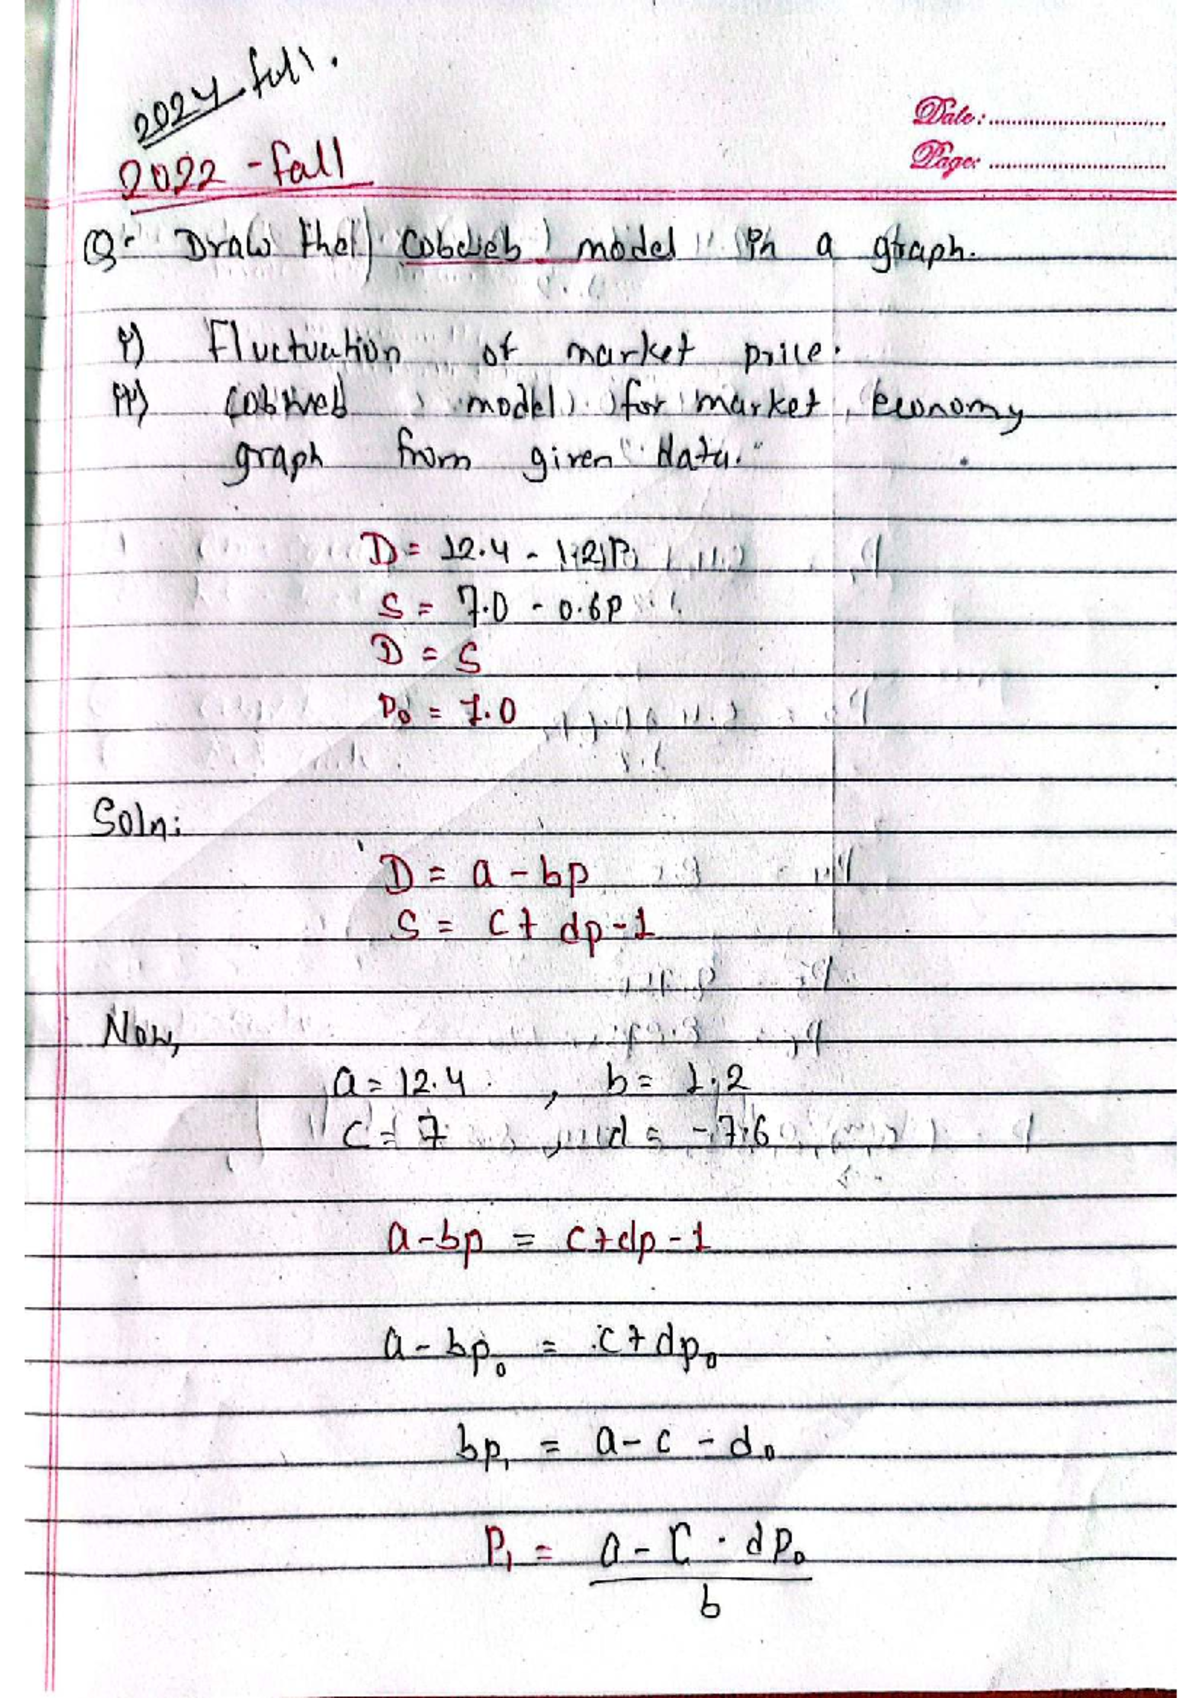 2024 fall.
Date:
2022 - fall
Page:
Q- Draw the cobweb model in a graph.
i) Fluctuation of market price.
ii) cobweb model for market economy
graph from given data.
D = 12.4 - 1.2P
S = 7.0 - 0.6P
D = S
P₀ = 1.0
Soln:
D = a - bp
S = c + dp-1
Now,
a = 12.4 , b = 1.2
c = 7 , d = -7.6
a-bp = c+dp-1
a - bp₀ = c + dp₀
bp₁ = a - c - d₀
P₁ = a - C - dP₀
b